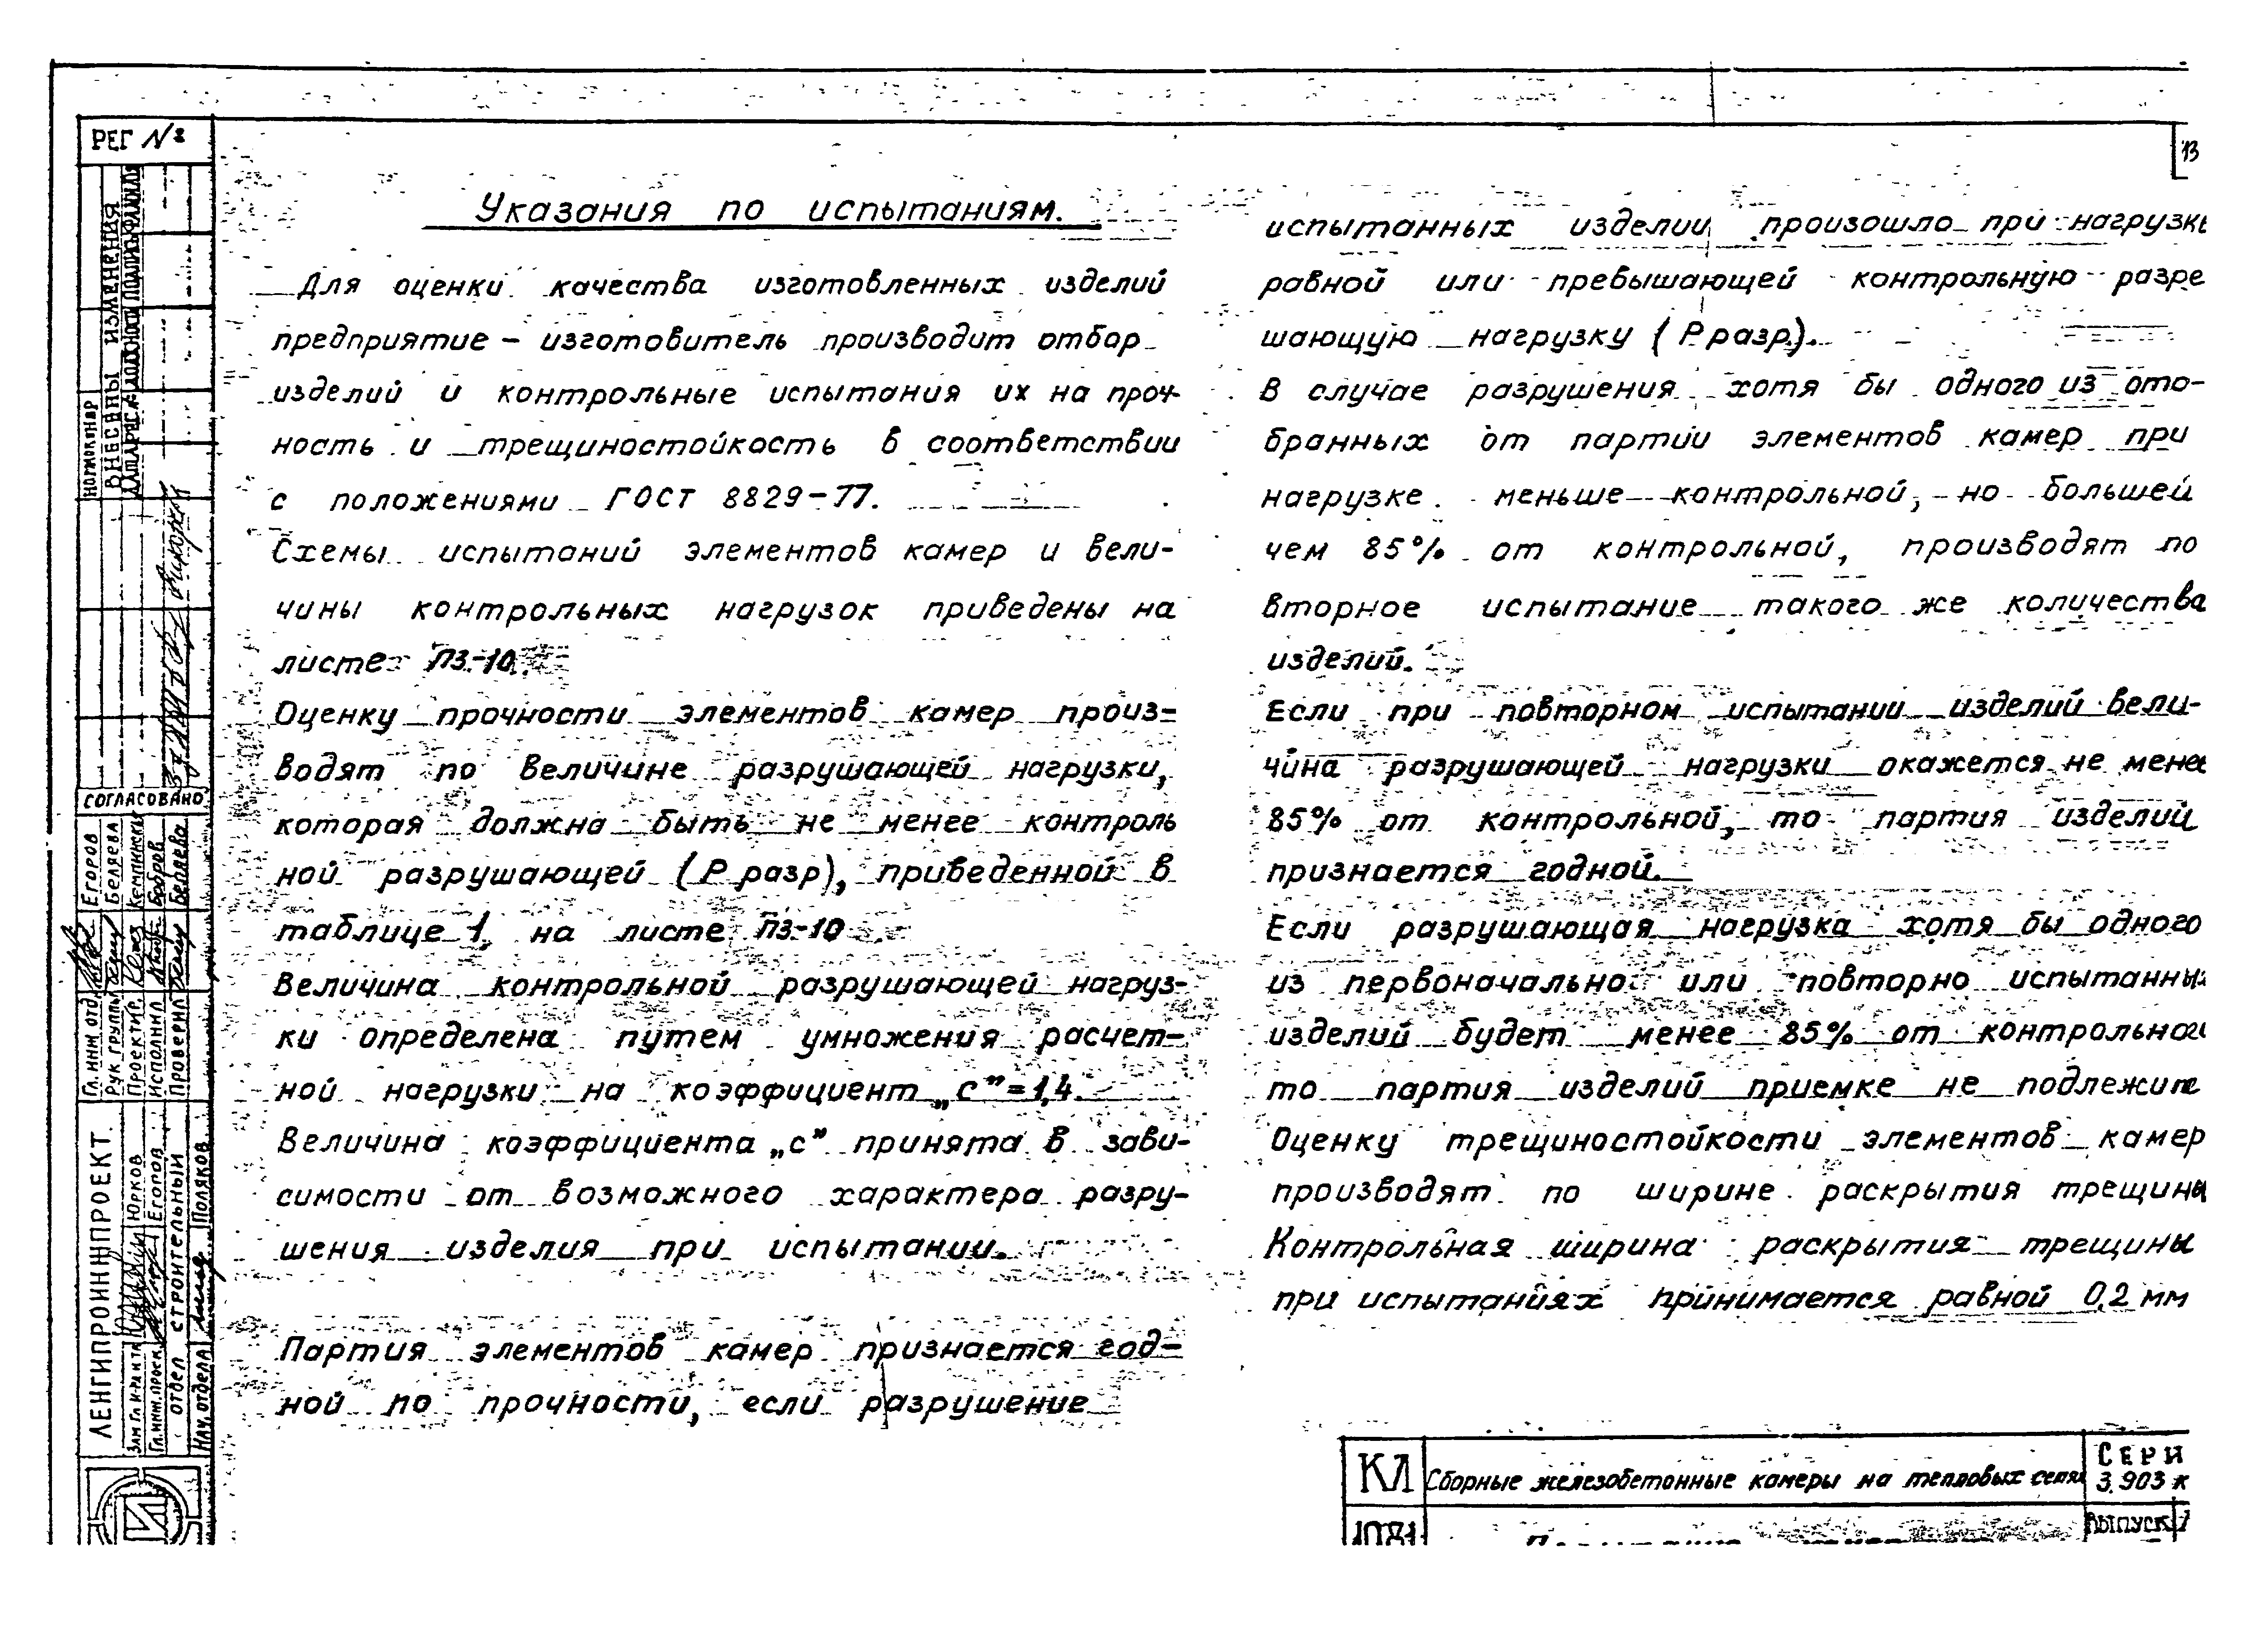 РЕГ №
13
Указания по испытаниям.
Для оценки качества изготовленных изделий
предприятие – изготовитель производит отбор
изделий и контрольные испытания их на проч-
ность и трещиностойкость в соответствии
с положениями ГОСТ 8829-77.
Схемы испытаний элементов камер и вели-
чины контрольных нагрузок приведены на
листе ПЗ-10.
Оценку прочности элементов камер произ-
водят по величине разрушающей нагрузки,
которая должна быть не менее контроль
ной разрушающей (Р разр), приведенной в
таблице 1, на листе ПЗ-10
Величина контрольной разрушающей нагруз-
ки определена путем умножения расчет-
ной нагрузки на коэффициент „с”=1,4.
Величина коэффициента „с” принята в зави-
симости от возможного характера разру-
шения изделия при испытании.
Партия элементов камер признается год-
ной по прочности, если разрушение
испытанных изделии произошло при нагрузке
равной или превышающей контрольную разре
шающую нагрузку (Р разр).
В случае разрушения хотя бы одного из ото-
бранных от партии элементов камер при
нагрузке меньше контрольной, но большей
чем 85% от контрольной, производят по
вторное испытание такого же количества
изделий.
Если при повторном испытании изделий вели-
чина разрушающей нагрузки окажется не менее
85% от контрольной, то партия изделий
признается годной.
Если разрушающая нагрузка хотя бы одного
из первоначально или повторно испытанны
изделий будет менее 85% от контрольной
то партия изделий приемке не подлежит
Оценку трещиностойкости элементов камер
производят по ширине раскрытия трещины
Контрольная ширина раскрытия трещины
при испытаниях принимается равной 0,2 мм
НОРМОКОНТР
ВНЕСЕНЫ ИЗМЕНЕНИЯ
СОГЛАСОВАНО
Гл. инж. отд. Егоров
Рук. группы Беляева
Проектир. Кемпински
Исполнил Бобров
Проверил Беляева
ЛЕНГИПРОИНЖПРОЕКТ.
Зам. гл. и-ра ин-та Юрков
Гл. инж. проек. Егоров
отдел строительный
Нач. отдела Поляков
КЛ
Сборные железобетонные камеры на тепловых сетях
СЕРИ
3.903 к
1981
ВЫПУСК